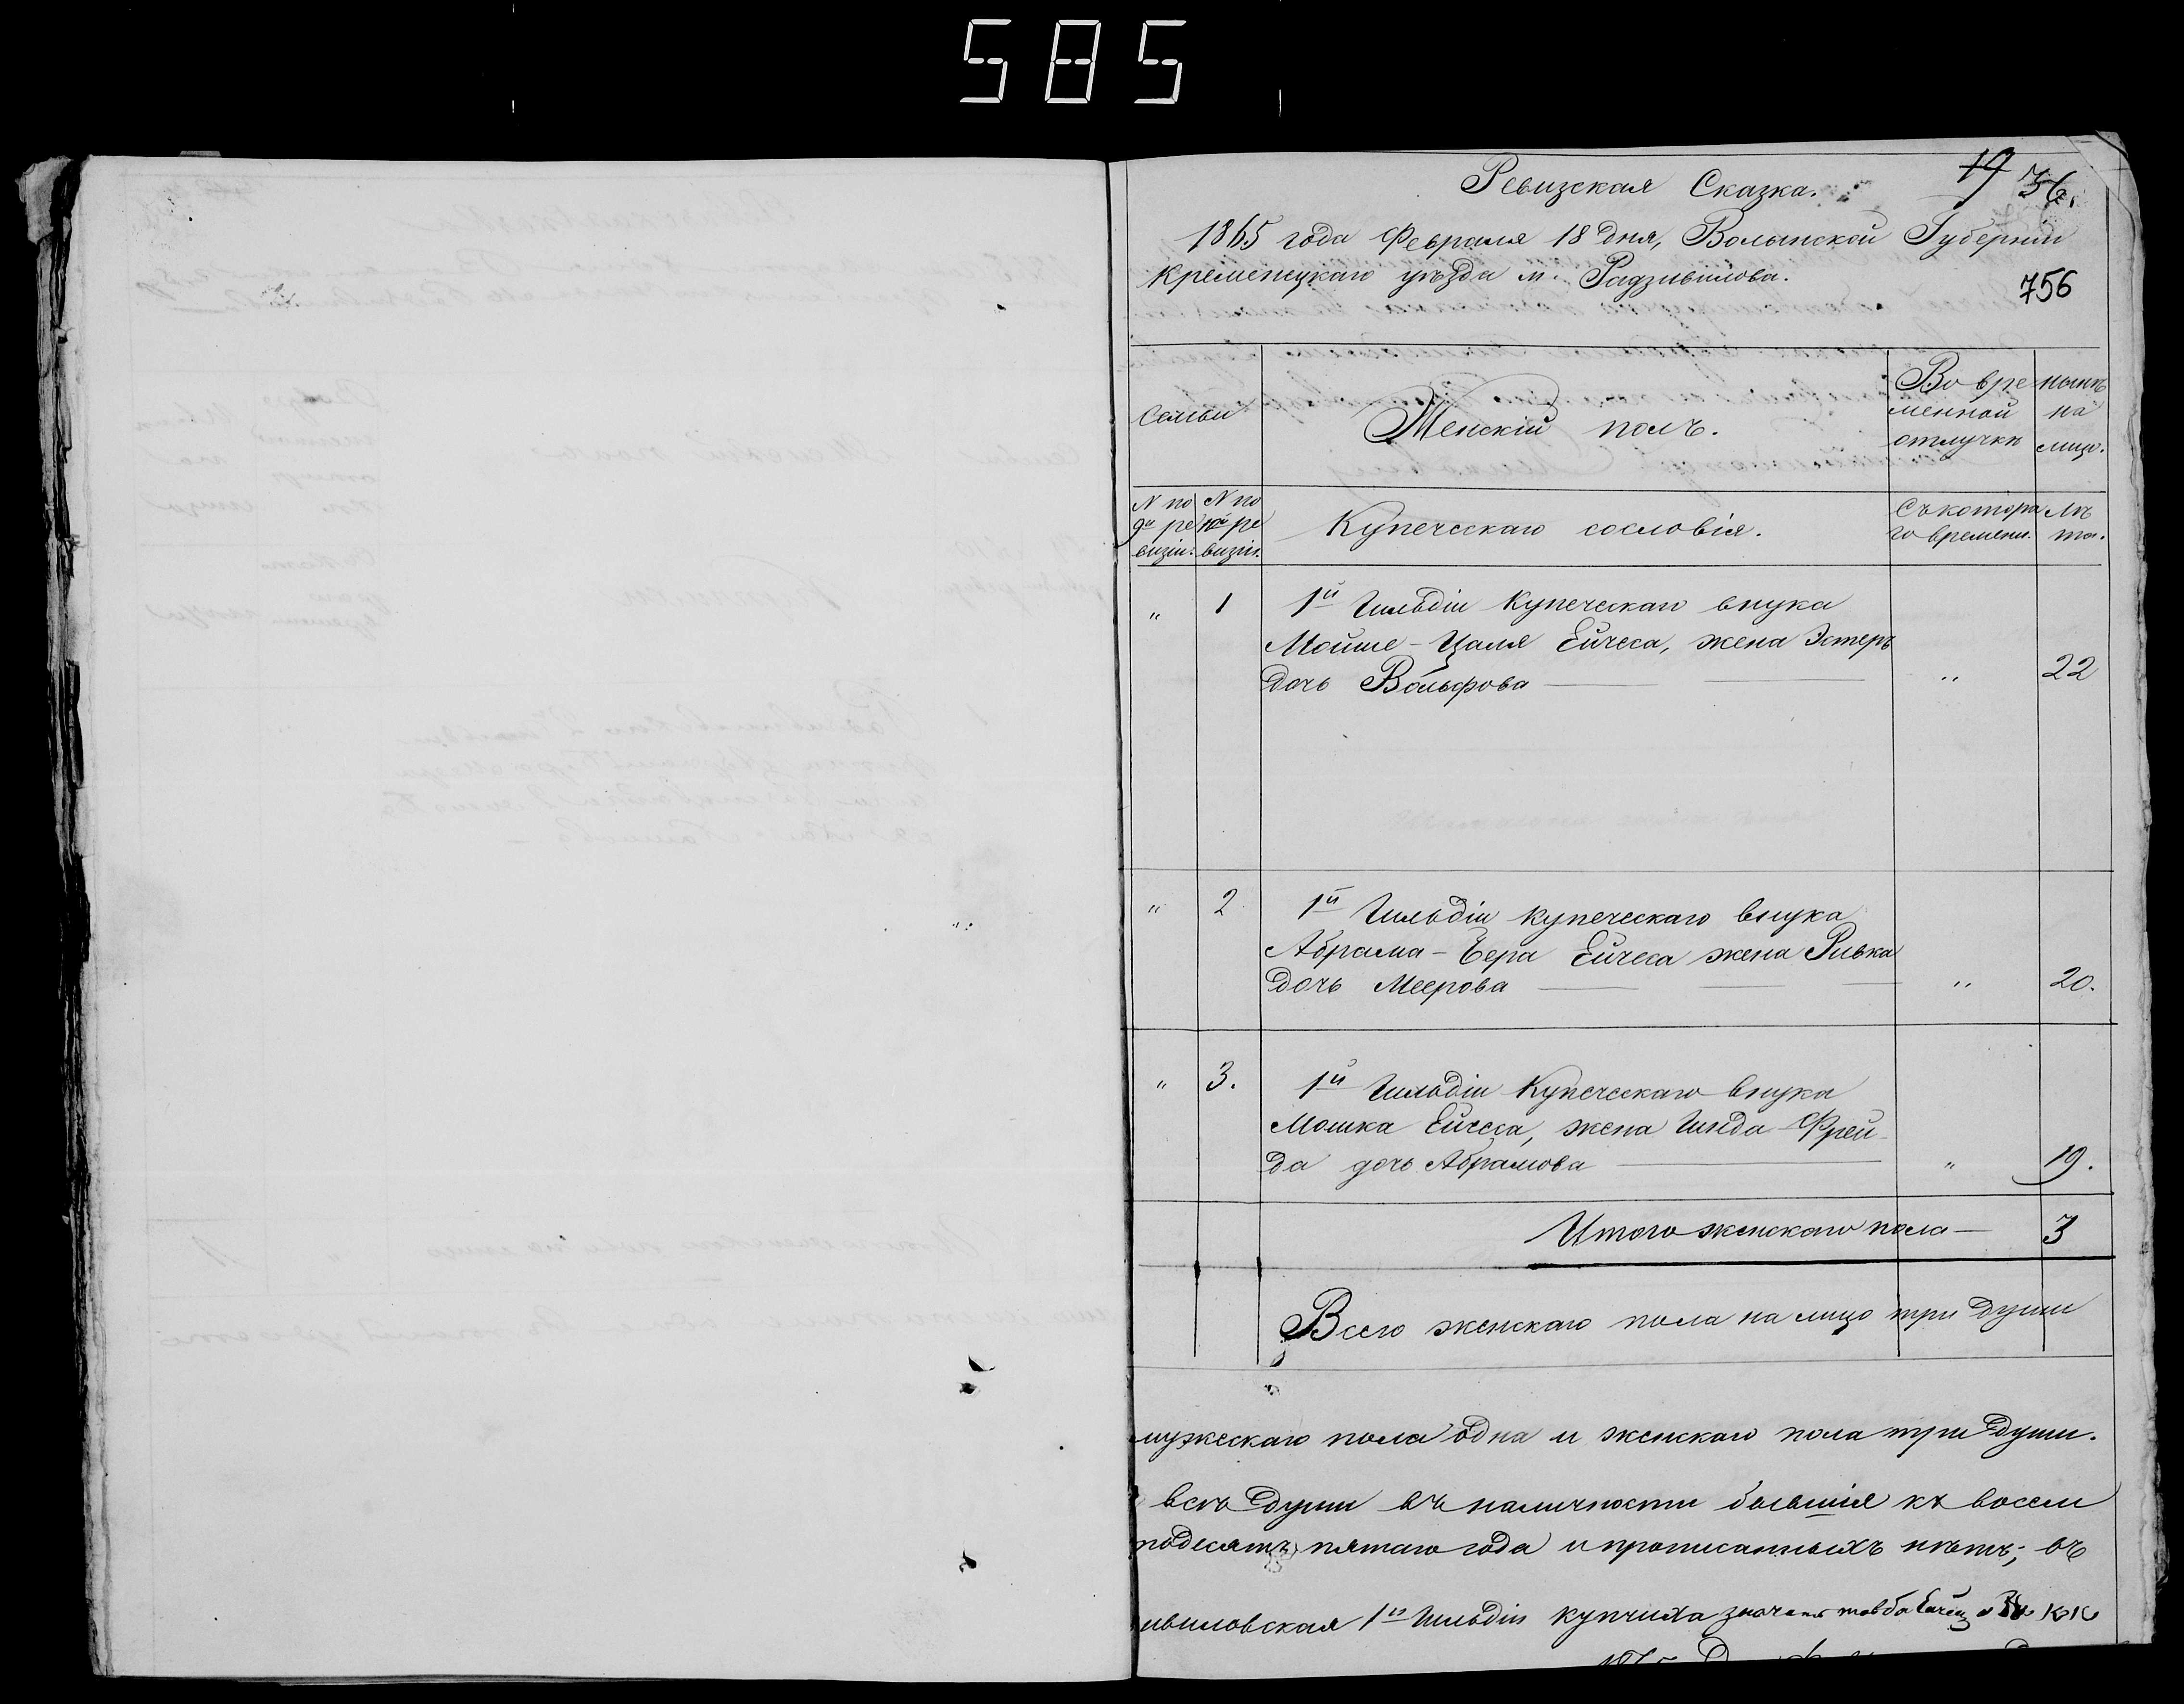 585
Ревизская Сказка.
19 36.
1865 года Февраля 18 дня, Волынской Губерніи
Кременецкаго уѣзда м. Радзивилова.
756
Семьи
Женскій полъ.
Во вре
менной
отлучкѣ
нынѣ
на
лицо.
N по
9й ре
визіи.
N по
10й ре
визіи.
Купеческаго сословія.
Съ котора
го времени.
Лѣ
та.
" 1 1й Гильдіи Купеческаго внука
Мойше-Цаля Ейчеса, жена Эстеръ
дочь Вольфова — " 22
" 2 1й Гильдіи купеческаго внука
Абрама-Бера Ейчеса жена Ривка
дочь Меерова — — — " 20.
" 3. 1й Гильдіи Купеческаго внука
Мошка Ейчеса, жена Гинда-Фрей-
да дочь Абрамова — " 19.
Итого женскаго пола — 3
Всего женскаго пола на лицо три души
мужескаго пола одна и женскаго пола три души.
всѣ души въ наличности бывшія къ восем
подесятъ пятаго года и прописанныхъ нѣтъ; въ
ивиловская 1й Гильдіи купчиха